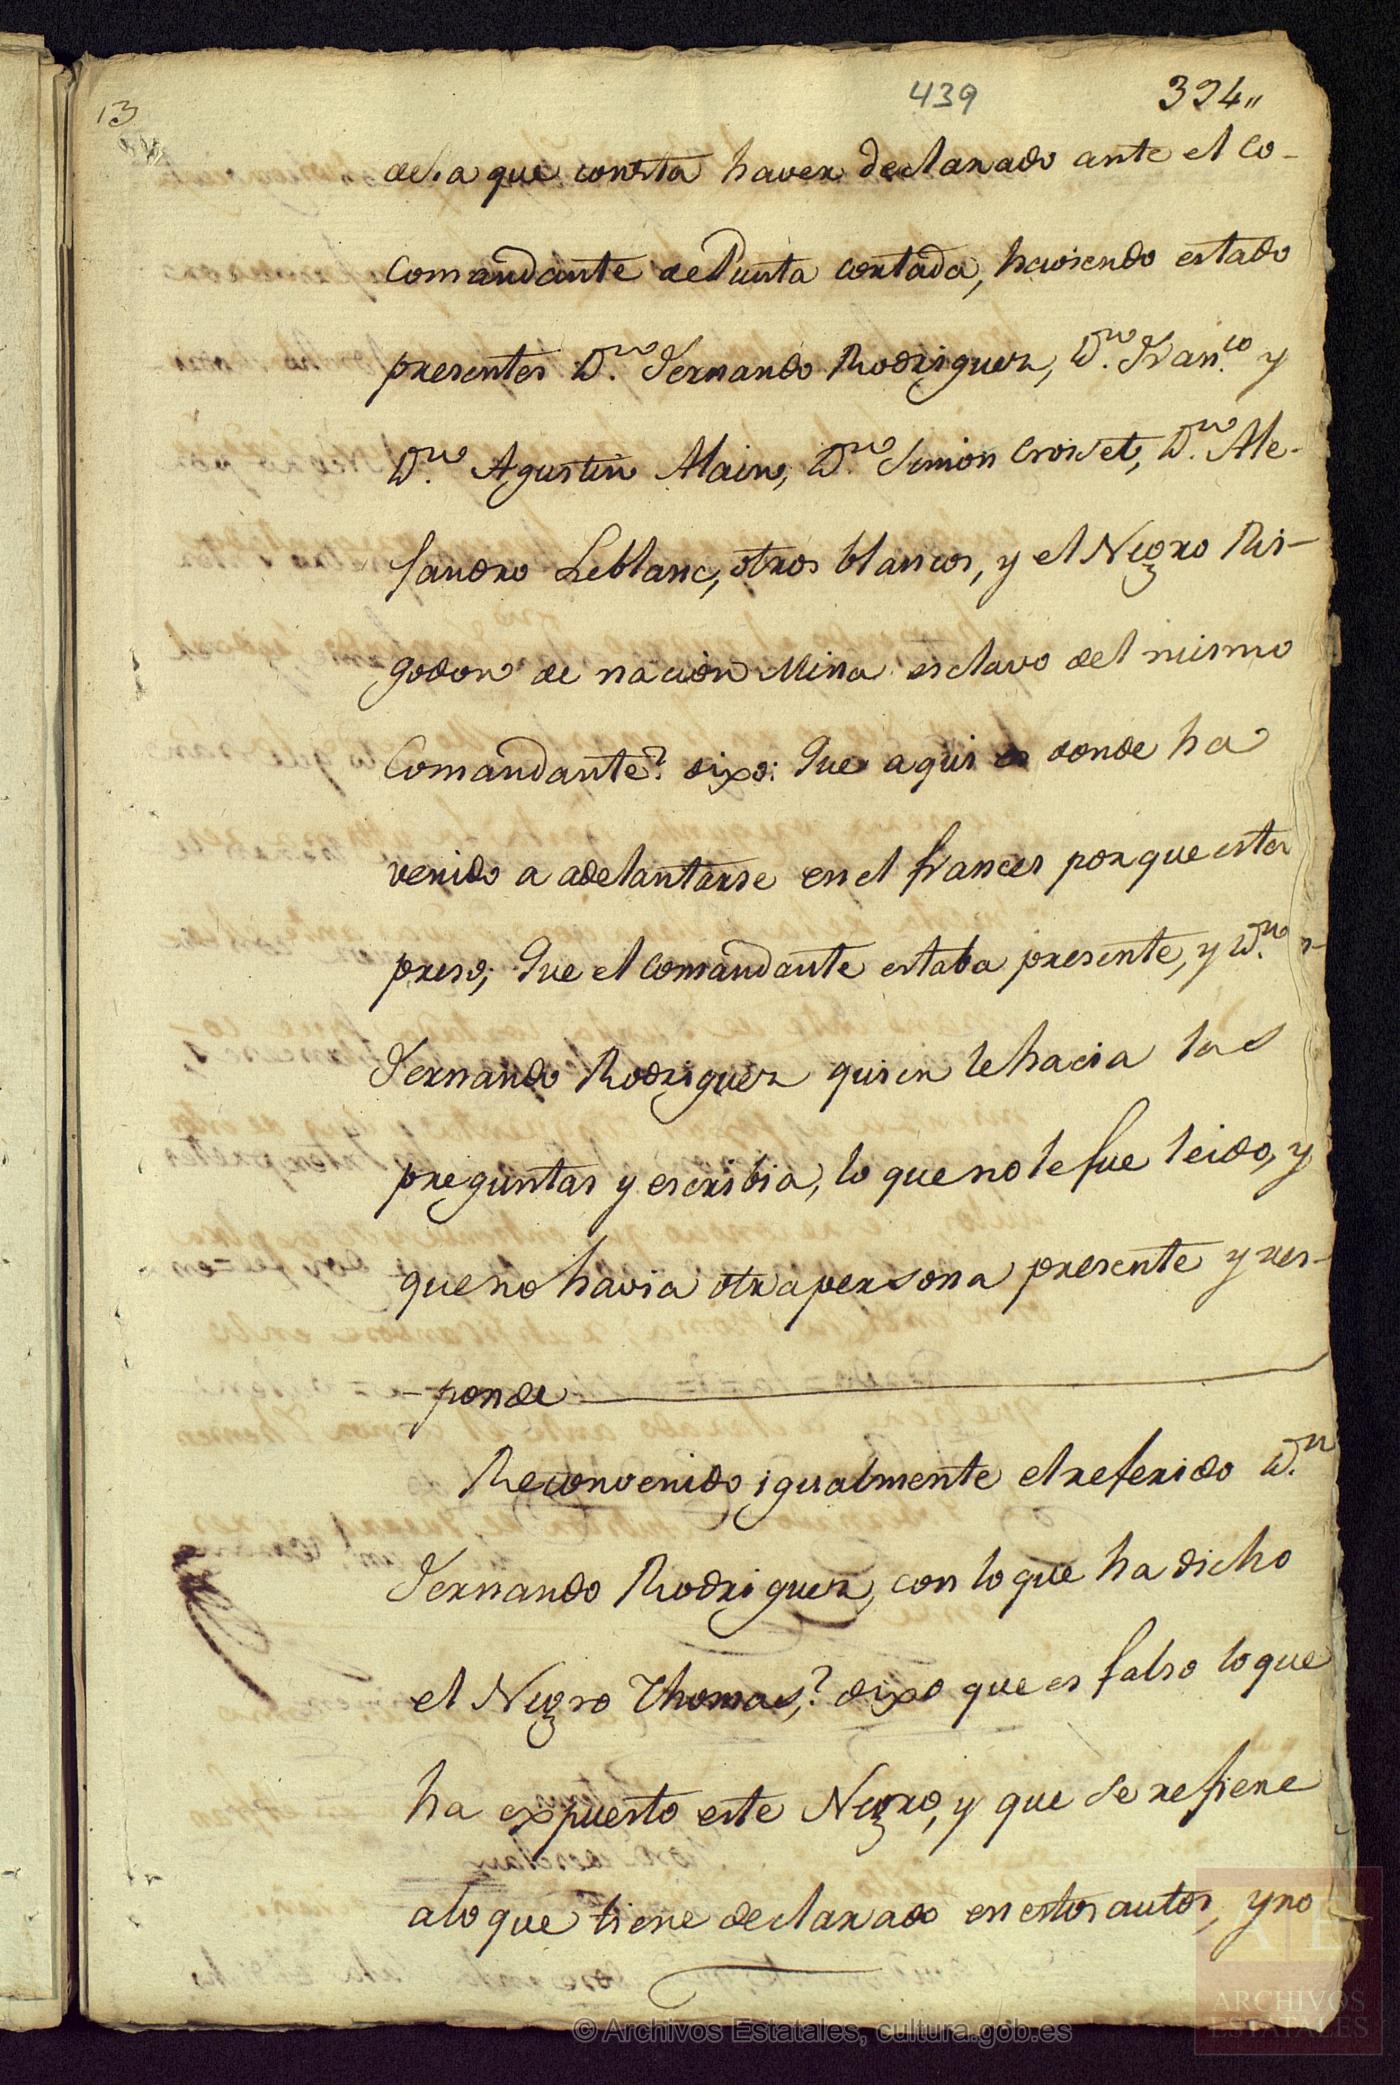 13
439
394,,
de la que consta haver declarado ante el Co-
Comandante de Punta cortada, haviendo estado
presentes Dn. Fernando Rodriguez, Dn. Franco. y
Dn. Agustin Alain, Dn. Simon Croiset, Dn. Ale-
sandro Leblanc, otros blancos, y el Negro Ri-
godon de nacion Mina esclavo del mismo
Comandante? dixo: Que aqui es donde ha
venido a adelantarse en el frances porque esta
preso; Que el Comandante estaba presente, y Dn.
Fernando Rodriguez quien le hacia las
preguntas y escribia, lo que no le fue leido, y
que no havia otra persona presente y res-
-ponde
Reconvenido igualmente el referido Dn.
Fernando Rodriguez, con lo que ha dicho
el Negro Thomas,? dixo que es falso lo que
ha expuesto este Negro, y que se refiere
a lo que tiene declarado en estos autos, y no
© Archivos Estatales, cultura.gob.es
AE
ARCHIVOS
ESTATALES